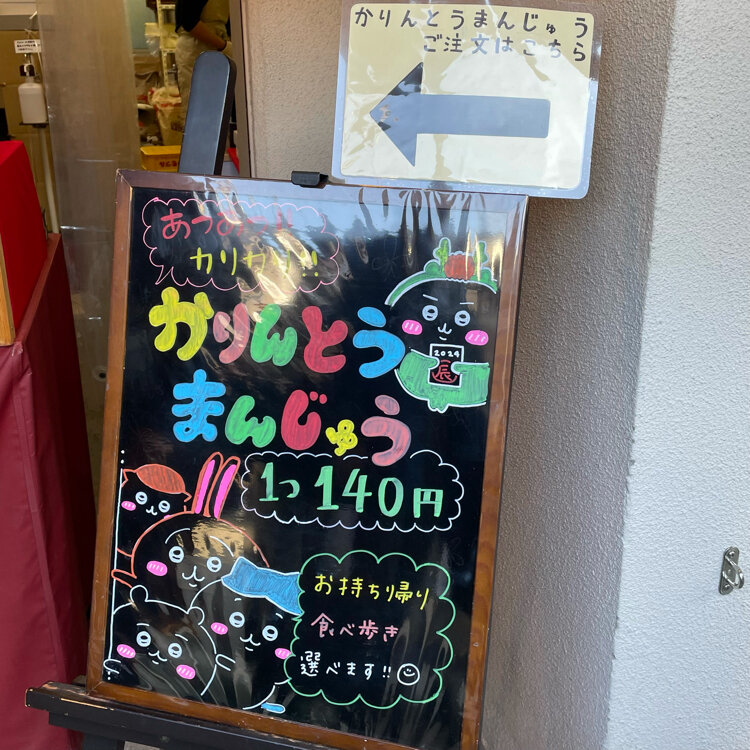 かりんとうまんじゅう
ご注文はこちら
カリカリ!!
かりんとう
まんじゅう
2024
辰
1つ 140円
お持ち帰り
食べ歩き
選べます!!